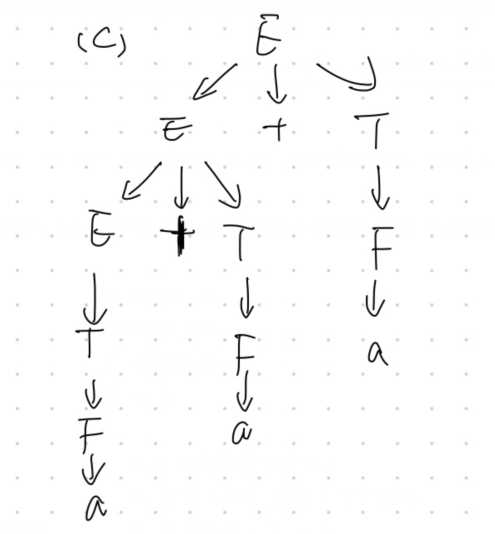 (C) E
E + T
E + T F
T F a
F a
a